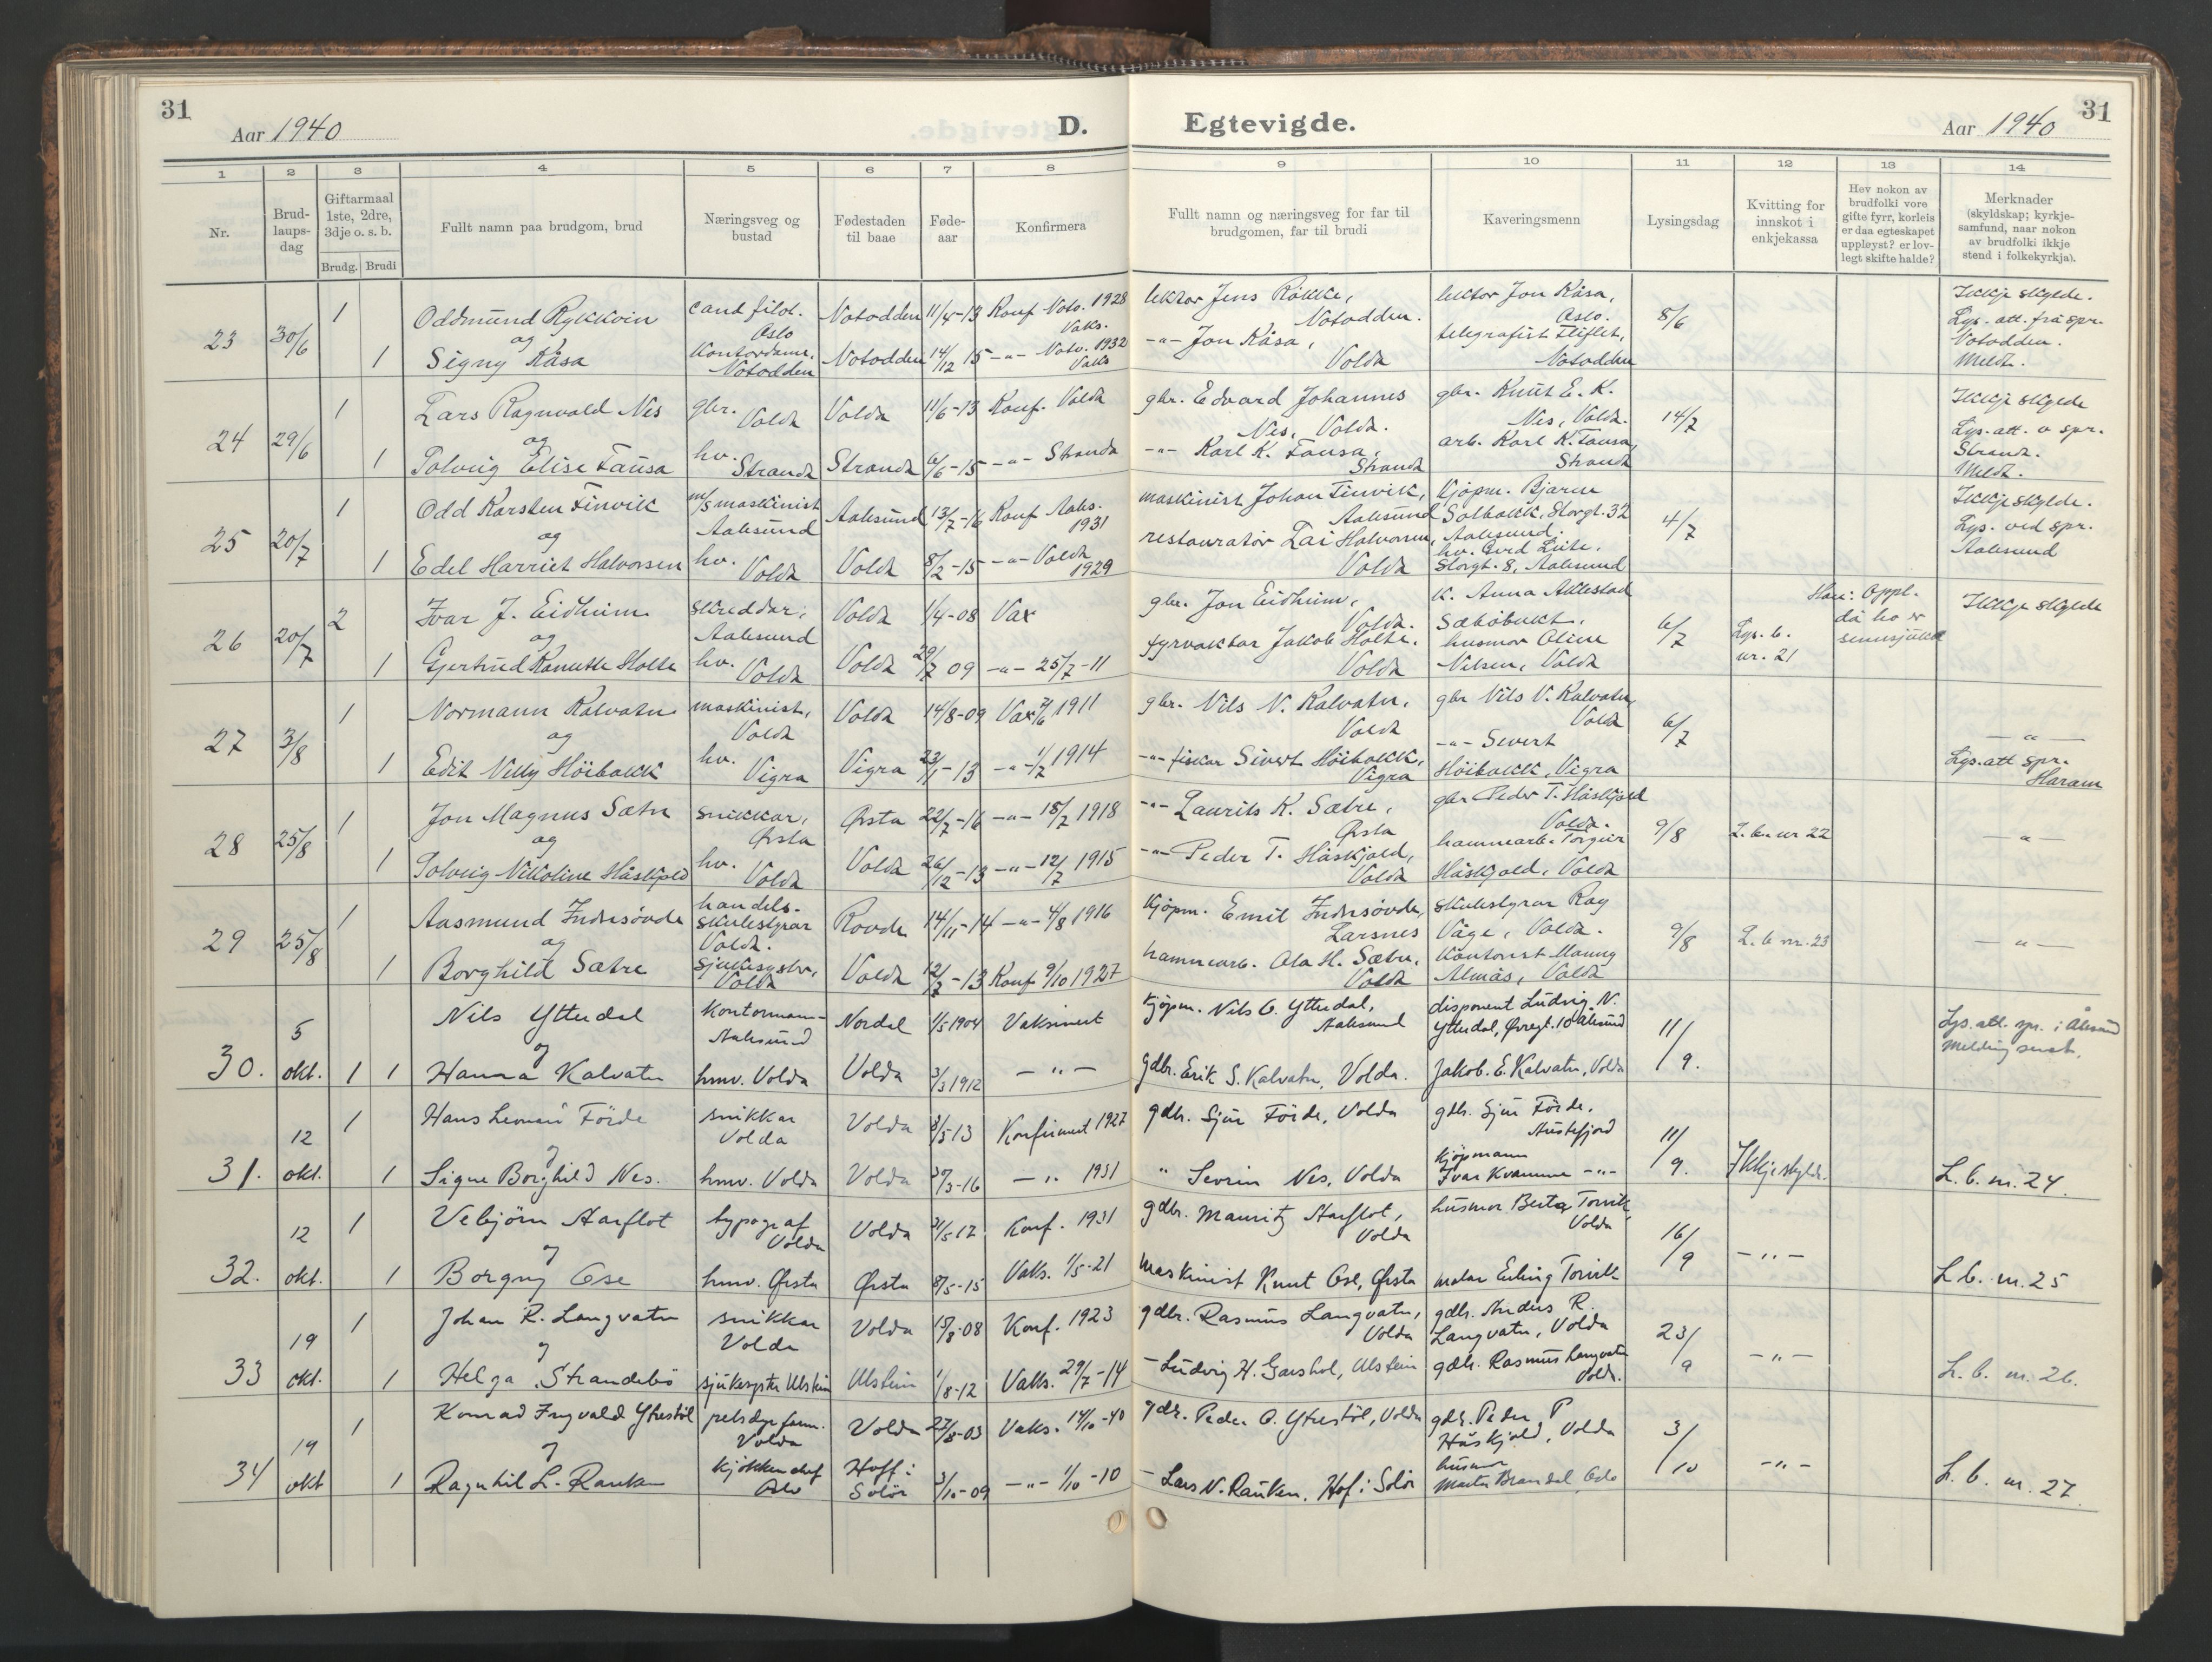 31
Aar 1940
D.
Egtevigde.
Aar 1940
31
1 2 3 4 5 6 7 8 9 10 11 12 13 14
Nr.
Brud-
laups-
dag
Giftarmaal
1ste, 2dre,
3dje o. s. b.
Brudg. Brudi
Fullt namn paa brudgom, brud
Næringsveg og
bustad
Fødestaden
til baae
Føde-
aar
Konfirmera
Fullt namn og næringsveg for far til
brudgomen, far til brudi
Kaveringsmenn
Lysingsdag
Kvitting for
innskot i
enkjekassa
Hev nokon av
brudfolki vore
gifte fyrr, korleis
er daa egteskapet
uppløyst? er lov-
legt skifte halde?
Merknader
(skyldskap; kyrkje-
samfund, naar nokon
av brudfolki ikkje
stend i folkekyrkja).
23 30/6
1 Oddmund Rykkvin
og
1 Signy Kåsa
cand filol.
Oslo
Kontordame,
Notodden
Notodden 11/4-13 Konf Noto. 1928
Vaks.
Notodden 14/12 15 -"- Noto. 1932
Vaks
lektor Jens Røkke,
Notodden.
-"- Jon Kåsa,
Volda
lektor Jon Kåsa,
Oslo.
telegrafist Fliflet,
Notodden
8/6
Ikkje skylde.
Lys. att. frå spr.
Notodden.
Meldt.
24 29/6
1 Lars Ragnvald Nes
og
1 Solveig Elise Tausa
gbr.
Volda
hv.
Stranda
Volda 11/6-13 Konf. Volda
Stranda 6/6-15 -"- Stranda
gbr. Edvard Johannes
Nes, Volda.
-"- Karl K. Tausa,
Stranda
gbr. Knut E. K.
Nes, Volda.
arb. Karl K. Tausa,
Stranda
14/7
Ikkje skylde
Lys. att. v spr.
Stranda.
Meldt.
25 20/7
1 Odd Karsten Finvik
og
1 Edel Harriet Halvorsen
m/s maskinist
Aalesund
hv.
Volda
Aalesund 13/7-16 Konf Aales.
1931
Volda 8/2-15 -"- Volda
1929
maskinist Johan Finvik,
Aalesund
restauratør Lai Halvorsen,
Volda
Kjøpm. Bjarne
Solbakk, Storgt. 32
Aalesund,
hv. Gerd Liite,
Storgt. 8, Aalesund
4/7
Ikkje skylde.
Lys. ved spr.
Aalesund
26 20/7
2 Ivar J. Eidheim
og
1 Gjertrud Kanutte Holte
skreddar,
Aalesund
hv.
Volda
Volda 1/4-08 Vax
Volda 29/7 09 -"- 25/7-11
gbr. Jon Eidheim,
Volda.
fyrvaktar Jakob Holte.
Volda
k. Anna Aklestad
Sæbøbukt.
husmor Oline
Nilsen, Volda
6/7
Lys. b.
nr. 21
Oppl.
då ho er
sinnsjuk
Ikkje skylde
27 3/8
1 Normann Kalvatn
og
1 Edit Nelly Höibakk
maskinist,
Volda
hv.
Vigra
Volda 14/8-09 Vax 2/6 1911
Vigra 23/1-13 -"- 1/7 1914
gbr. Nils N. Kalvatn,
Volda
-"- fiskar Sivert Höibakk,
Vigra
gbr Nils V. Kalvatn,
Volda
-"- Sivert
Höibakk, Vigra
6/7
-"-
Lys. att spr.
Haram
28 25/8
1 Jon Magnus Sætre
og
1 Solveig Nikoline Håskjold
snikkar,
Ørsta
hv.
Volda
Ørsta 22/7-16 -"- 18/7 1918
Volda 26/12-13 -"- 12/7 1915
-"- Laurits K. Sætre,
Ørsta
-"- Peder T. Håskjold,
Volda
gbr Peder T. Håskjold
Volda.
hamnearb. Torgeir
Håskjold, Volda
9/8
L. b. nr 22
-"-
29 25/8
1 Aasmund Indresövde
og
1 Borghild Sætre
handels-
skulestyrar
Volda.
Sjukesyster,
Volda
Rovde 14/11-14 -"- 4/8 1916
Volda 12/7-13 Konf 9/10 1927
Kjöpm. Emil Indresövde,
Larsnes
hamnearb. Ola H. Sætre,
Volda
skulestyrar Rag
Våge, Volda.
Kontorist Maung
Almås, Volda
9/8
L. b nr. 23
-"-
30. 5 okt. 1 1
Nils Ytterdal
og
Hanna Kalvatn
Kontormann
Aalesund
hmv. Volda
Nordal 1/5 1904 Vaksinert
Volda 3/3 1912 -"-
kjöpm. Nils O. Ytterdal,
Aalesund
gdbr. Erik S. Kalvatn, Volda.
disponent Ludvig N.
Ytterdal, Øvregt. 10 Ålesund
Jakob. E. Kalvatn, Volda
11/9.
Lys. att. spr. i Ålesund
Melding sendt.
31. 12 okt.
1 Hans Förde
og
1 Signe Borghild Nes.
snikkar
Volda
hmv. Volda
Volda 8/5 13 Konfirmert 1927
Volda 30/3-16 -"- 1931
gdbr. Sjur Förde, Volda
" Sevrin Nes, Volda
gdbr. Sjur Förde.
Austefjord
kjøpmann
Ivar Kvamme -"-
11/9.
Ikkje skylde.
L. b. nr. 24.
32. 12 okt.
1 Vebjörn Aarflot
og
1 Borgny Ose
typograf
Volda
hmv. Ørsta
Volda 31/5-12 Konf. 1931
Ørsta 8/5-15 Vaks. 1/5-21
gdbr. Mauritz Aarflot,
Volda
maskinist Knut Ose, Ørsta
husmor Berta Torvik,
Volda
malar Erling Torvik
16/9
-"-
L b. nr. 25
33 19 okt.
1 Johan R. Langvatn
og
1 Helga Strandebö
snikkar
Volda
sjukesyster Ulstein
Volda 15/8-08 Konf. 1923
Ulstein 1/8-12 Vaks. 29/7-14
gdbr. Rasmus Langvatn,
Volda
- Ludvig H. Garshol, Ulstein
gdbr. Anders R.
Langvatn, Volda
gdbr. Rasmus Langvatn
Volda.
23/9
-"-
L. b. nr. 26.
34 19 okt
1 Konrad Ingvald Ytrestöl
og
1 Ragnhil L. Rauken
pelsdyrfarm.
Volda
kjökkenchef
Oslo
Volda 27/8-03 Vaks. 14/10-40
Hoff i
Solör 3/10-09 -"- 1/10-10
gdbr. Peder O. Ytrestöl, Volda
- Lars N. Rauken, Hof i Solör
gdbr. Peder P
Håskjold, Volda
husmor
Marta Brandal Oslo
3/10
-"-
L. b. nr. 27.